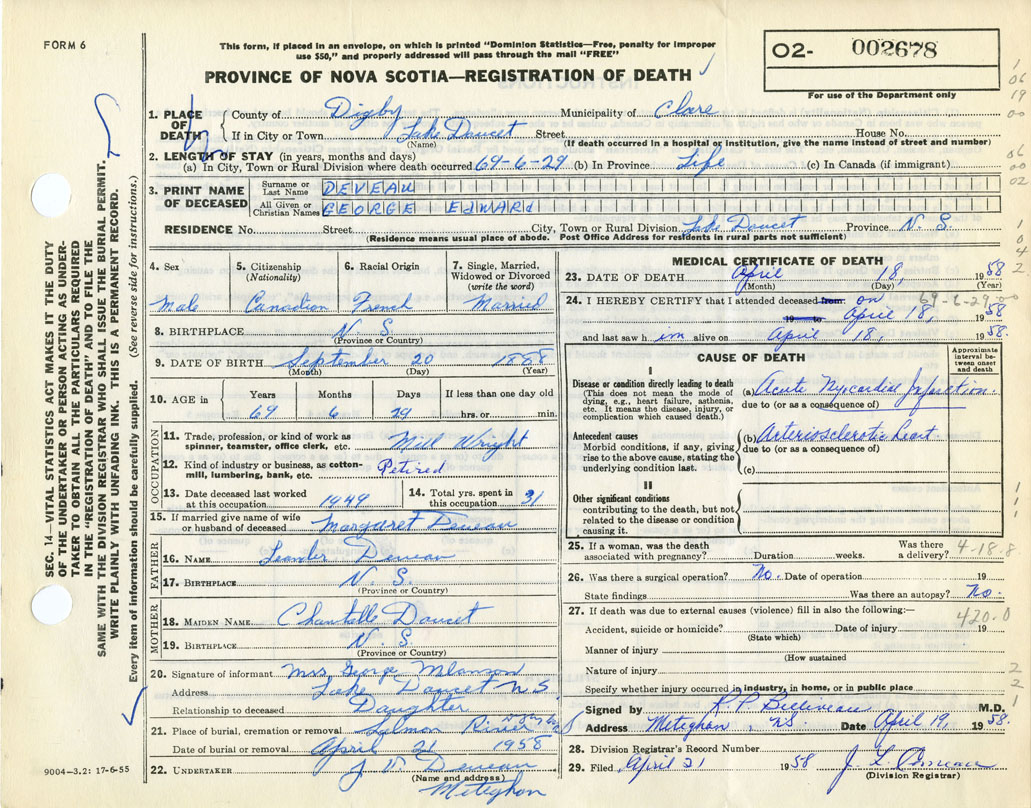 FORM 6
This form, if placed in an envelope, on which is printed "Dominion Statistics—Free, penalty for improper
use $50," and properly addressed will pass through the mail "FREE"
PROVINCE OF NOVA SCOTIA—REGISTRATION OF DEATH
O2- 002678
For use of the Department only
1. PLACE OF DEATH
County of Digby Municipality of Clare
If in City or Town Lake Doucet Street House No.
(Name) (If death occurred in a hospital or institution, give the name instead of street and number)
2. LENGTH OF STAY (in years, months and days)
(a) In City, Town or Rural Division where death occurred 69-6-29 (b) In Province Life (c) In Canada (if immigrant)
3. PRINT NAME OF DECEASED
Surname or Last Name DEVEAU
All Given or Christian Names GEORGE EDWARD
RESIDENCE No. Street City, Town or Rural Division Lake Doucet Province N. S.
(Residence means usual place of abode. Post Office Address for residents in rural parts not sufficient)
4. Sex Male
5. Citizenship (Nationality) Canadian
6. Racial Origin French
7. Single, Married, Widowed or Divorced (write the word) Married
8. BIRTHPLACE N. S.
(Province or Country)
9. DATE OF BIRTH September 20 1888
(Month) (Day) (Year)
10. AGE in Years Months Days If less than one day old
69 6 29 hrs. or min.
OCCUPATION
11. Trade, profession, or kind of work as spinner, teamster, office clerk, etc. Mill Wright
12. Kind of industry or business, as cotton-mill, lumbering, bank, etc. Retired
13. Date deceased last worked at this occupation 1949
14. Total yrs. spent in this occupation 31
15. If married give name of wife or husband of deceased Margaret Deveau
FATHER
16. NAME Leander Deveau
17. BIRTHPLACE N. S.
(Province or Country)
MOTHER
18. MAIDEN NAME Chantelle Doucet
19. BIRTHPLACE N. S.
(Province or Country)
20. Signature of informant Mrs George Melanson
Address Lake Doucet N S
Relationship to deceased Daughter
21. Place of burial, cremation or removal Salmon River Digby Co
Date of burial or removal April 21 1958
22. UNDERTAKER J. V. Deveau
(Name and address)
Meteghan
MEDICAL CERTIFICATE OF DEATH
23. DATE OF DEATH April 18, 1958
(Month) (Day) (Year)
69-6-29
24. I HEREBY CERTIFY that I attended deceased from: on
19 to April 18, 1958
and last saw him alive on April 18, 1958.
CAUSE OF DEATH
Approximate interval between onset and death
I
Disease or condition directly leading to death
(This does not mean the mode of dying, e.g., heart failure, asthenia, etc. It means the disease, injury, or complication which caused death.)
(a) Acute Myocardial Infarction
due to (or as a consequence of)
Antecedent causes
Morbid conditions, if any, giving rise to the above cause, stating the underlying condition last.
(b) Arteriosclerotic heart
due to (or as a consequence of)
(c)
II
Other significant conditions
contributing to the death, but not related to the disease or condition causing it.
25. If a woman, was the death associated with pregnancy? Duration weeks. Was there a delivery? 4-18-8
26. Was there a surgical operation? No. Date of operation 19
State findings Was there an autopsy? No.
27. If death was due to external causes (violence) fill in also the following:—
420.0
Accident, suicide or homicide? Date of injury 19
(State which)
Manner of injury
(How sustained
Nature of injury
Specify whether injury occurred in industry, in home, or in public place
Signed by R. P. Belliveau M.D.
Address Meteghan, NS Date April 19, 1958.
28. Division Registrar's Record Number
29. Filed April 21 1958 J. L. Comeau
(Division Registrar)
9004-3.2: 17-6-55
SEC. 14—VITAL STATISTICS ACT MAKES IT THE DUTY
OF THE UNDERTAKER OR PERSON ACTING AS UNDER-
TAKER TO OBTAIN ALL THE PARTICULARS REQUIRED
IN THE "REGISTRATION OF DEATH" AND TO FILE THE
SAME WITH THE DIVISION REGISTRAR WHO SHALL ISSUE THE BURIAL PERMIT.
WRITE PLAINLY WITH UNFADING INK. THIS IS A PERMANENT RECORD.
Every item of information should be carefully supplied. (See reverse side for instructions.)
1
06
19
00
06
00
02
1
0
4
2
1
1
1
2
2
1